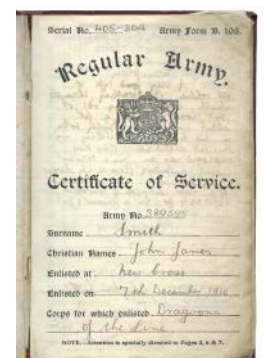 Serial No. 405-304 Army Form B. 108.
Regular Army.
Certificate of Service.
Army No. 389595
Surname Smith
Christian Names John James
Enlisted at New Cross
Enlisted on 7th December 1910
Corps for which enlisted Dragoons
of the Line
NOTE. Attention is specially directed to Pages 2, 6 & 7.